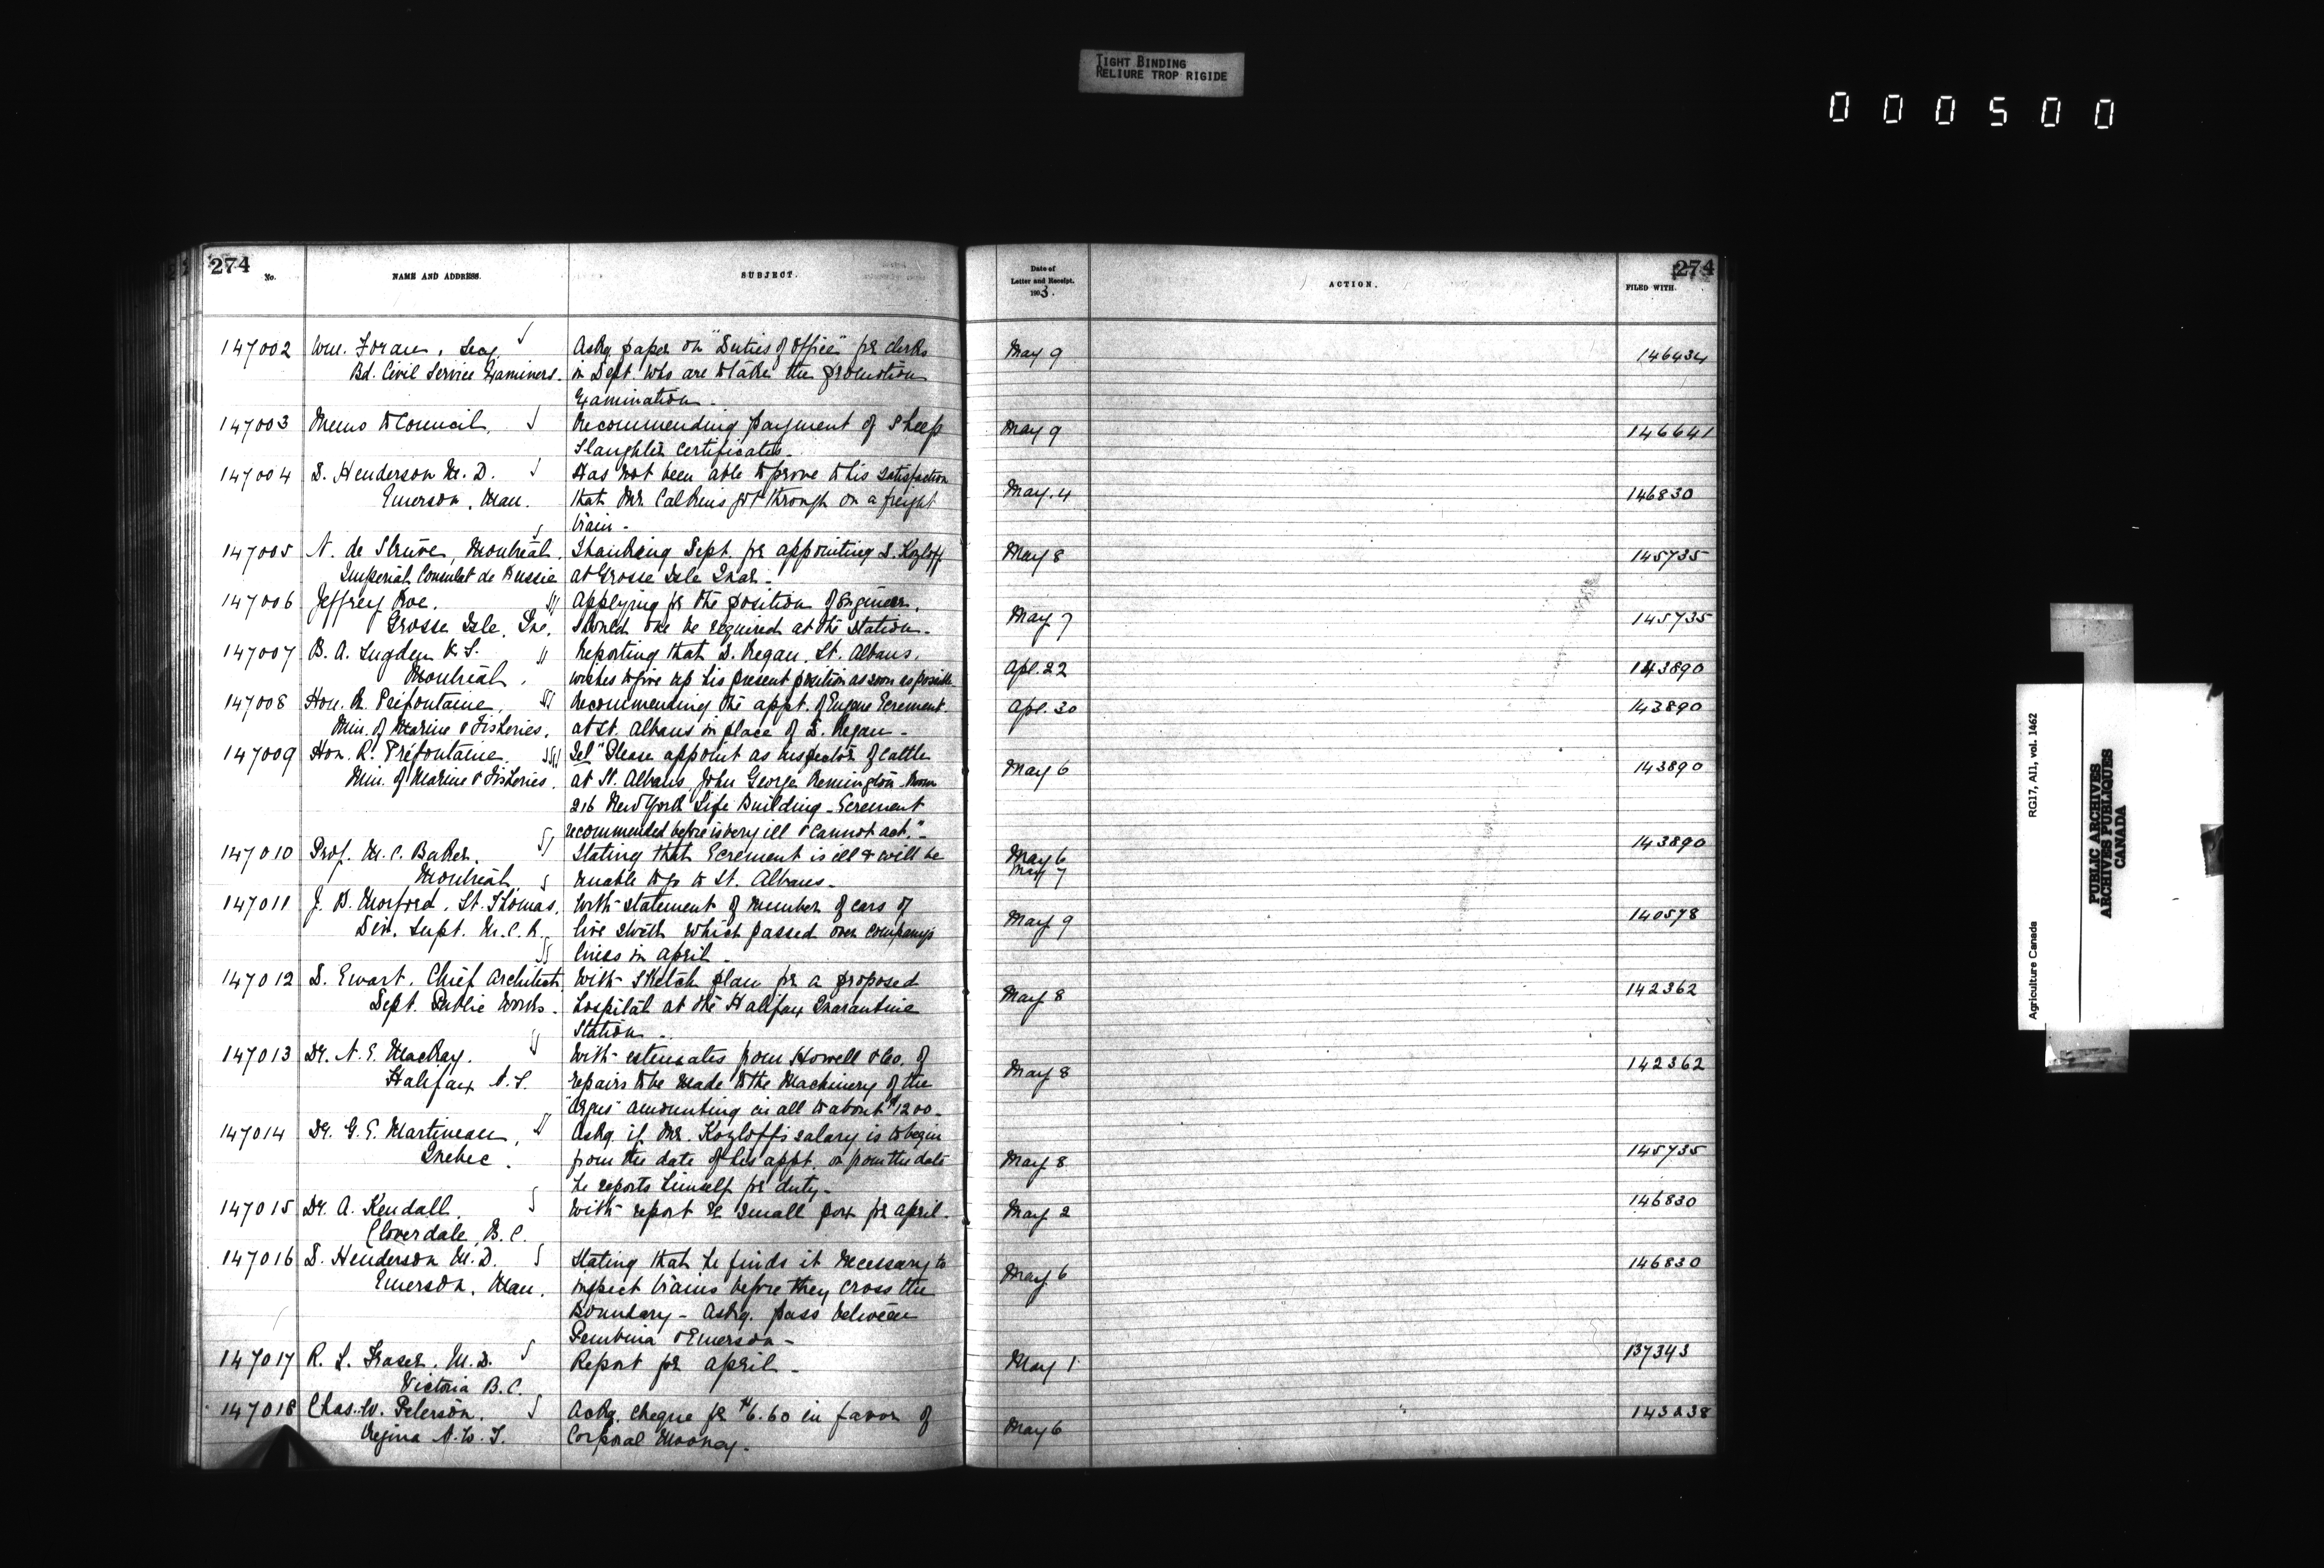 TIGHT BINDING
RELIURE TROP RIGIDE
000500
274
No.
NAME AND ADDRESS.
SUBJECT.
Date of
Letter and Receipt.
1903.
ACTION.
274
FILED WITH.
147002 Wm. Foran, Secy. Askg. paper on "Duties of Office" for clerks May 9 146434
Bd. Civil Service Examiners. in Dept. who are to take the promotion
Examination.
147003 Memo to Council. Recommending payment of Sheep May 9 146641
Slaughter Certificates.
147004 D. Henderson M.D. Has not been able to prove to his satisfaction
Emerson, Man. that Mr. Calkins got through on a freight May. 4 146830
train.
147005 N. de Struve, Montreal. Thanking Dept. for appointing S. Kozloff May 8 145735
Imperial Consulat de Russie at Grosse Isle Quar.
147006 Jeffrey Roe. Applying for the position of Engineer,
Grosse Isle, Que. should one be required at the Station. May 7 145735
147007 B. A. Sugden V.S. Reporting that D. Regan, St. Albans,
Montreal. wishes to give up his present position as soon as possible Apl. 22 143890
147008 Hon. R. Prefontaine, Recommending the appt. of Eugene Ecrement Apl. 30 143890
Min. of Marine & Fisheries. at St. Albans in place of D. Regan.
147009 Hon. R. Préfontaine, Tel "Please appoint as inspector of cattle
Min. of Marine & Fisheries. at St. Albans, John George Remington Room May 6 143890
216 New York Life Building - Ecrement
recommended before is very ill & cannot act."
147010 Prof. M. C. Baker, Stating that Ecrement is ill & will be May 6 143890
Montreal unable to go to St. Albans. May 7
147011 J. B. Morford, St. Thomas, With statement of number of cars of
Div. Supt. M.C.R. live stock which passed over company's May 9 140578
lines in April.
147012 D. Ewart, Chief Architect, With sketch plan for a proposed
Dept. Public Works. hospital at the Halifax Quarantine May 8 142362
Station.
147013 Dr. N. E. MacKay. With estimates from Howell & Co. of
Halifax N.S. repairs to be made to the Machinery of the May 8 142362
"Argus" amounting in all to about $1200.
147014 Dr. G. E. Martineau, Askg. if Mr. Kozloff's salary is to begin
Quebec. from the date of his appt. or from the date May 8 145735
he reports himself for duty.
147015 Dr. A. Kendall. With report re small pox for April. May 2 146830
Cloverdale, B.C.
147016 D. Henderson M.D. Stating that he finds it necessary to
Emerson, Man. inspect trains before they cross the May 6 146830
Boundary - Askg. pass between
Pembina & Emerson.
147017 R. L. Fraser, M.D. Report for April. May 1 137343
Victoria B.C.
147018 Chas. W. Peterson. Ackg. cheque for $6.60 in favor of
Regina N.W.T. Corporal Mooney. May 6 143238
Agriculture Canada
RG17, AII, vol. 1462
PUBLIC ARCHIVES
ARCHIVES PUBLIQUES
CANADA